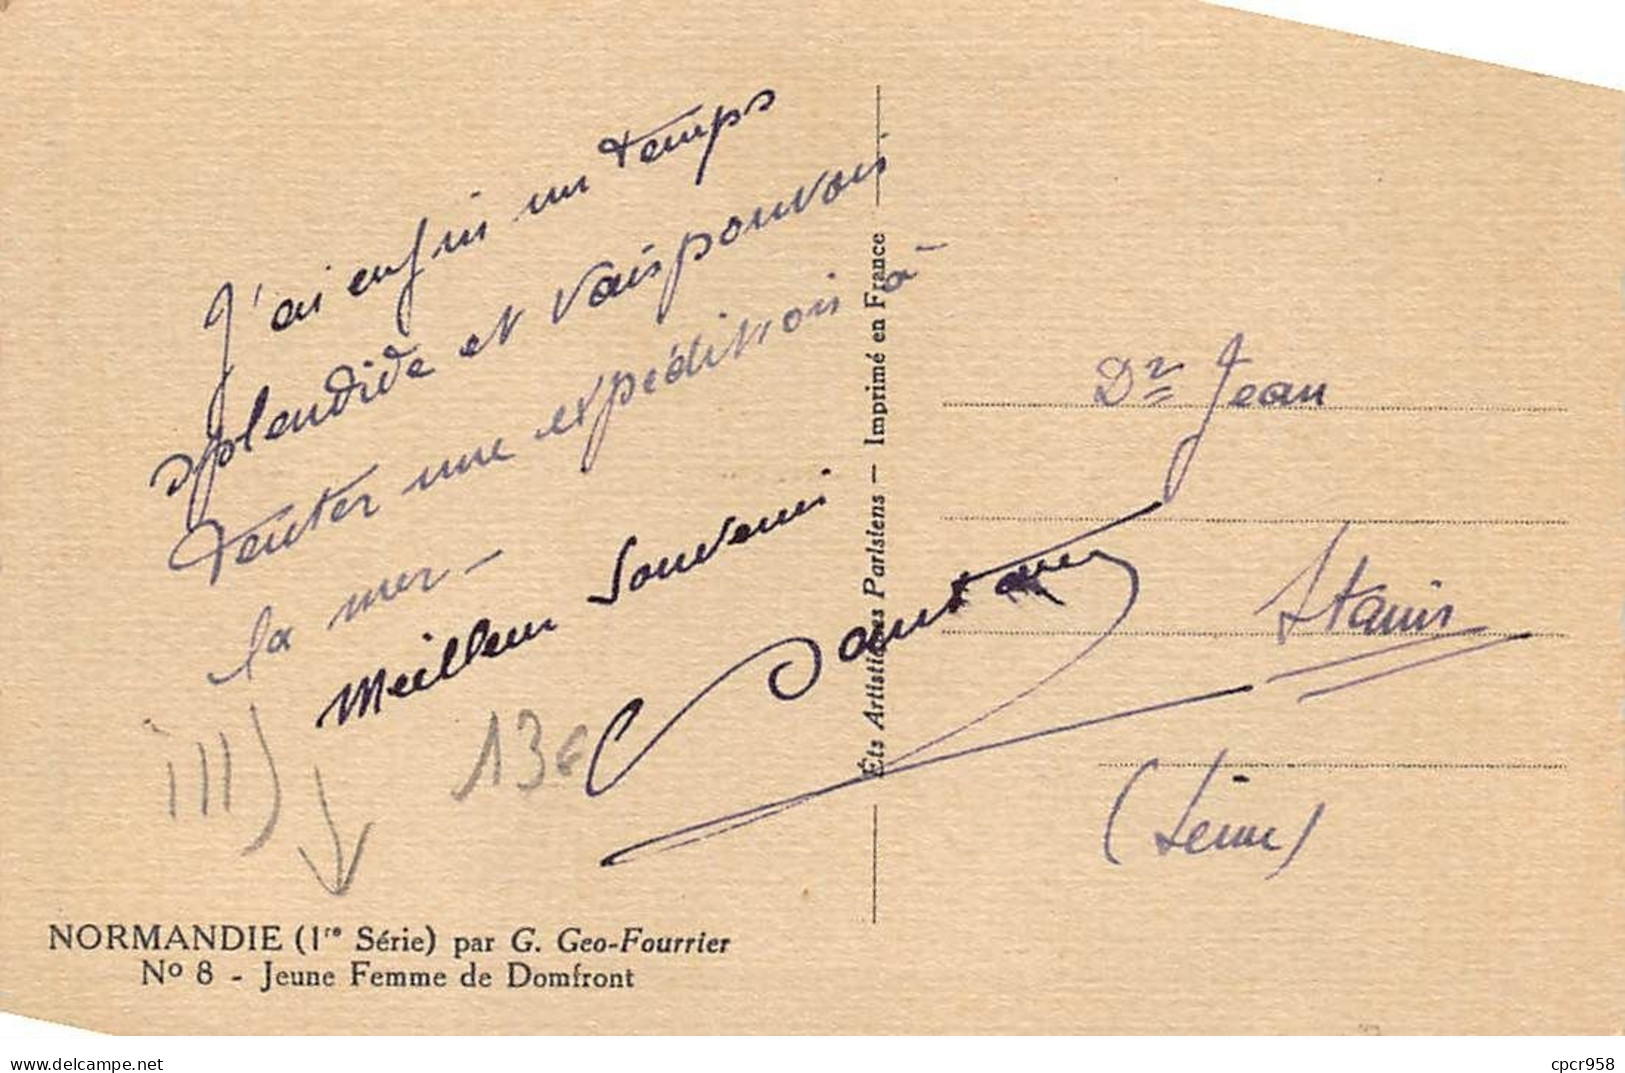 J'ai enfin un temps
splendide et vais pouvoir
tenter une expédition à
la mer —
Meilleur Souvenir
Dr Jean
Stains
(Seine)
Éts Artistiques Parisiens — Imprimé en France
ill)
13€
NORMANDIE (1re Série) par G. Geo-Fourrier
No 8 - Jeune Femme de Domfront
https://www.delcampe.net
cpcr958